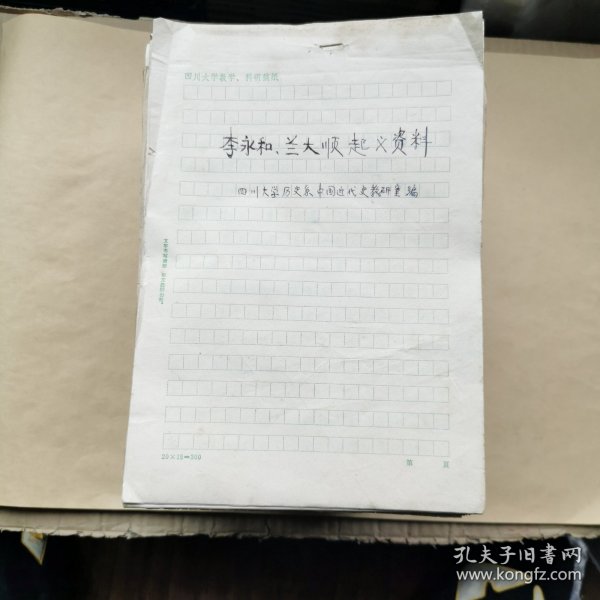 四川大学教学、科研稿纸
李永和、兰大顺起义资料
四川大学历史系中国近代史教研室编
20×15=300
第 页
孔夫子旧书网
www.kongfz.com